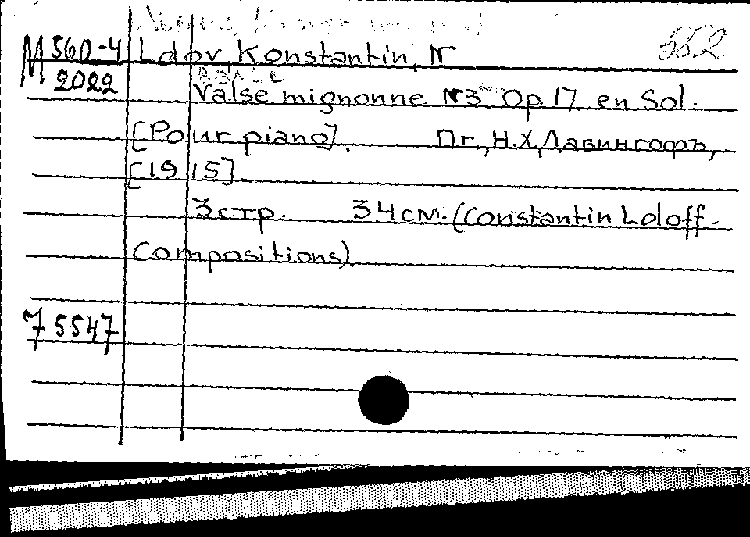 M 560-4 Ldov, Konstantin, N
2022
Valse mignonne №3 Op 17 en Sol.
[Pour piano]. Пг., Н.Х. Давингофъ,
[1915].
3 стр. 34 см. (Constantin Ldoff-
Compositions)
7 5547
552